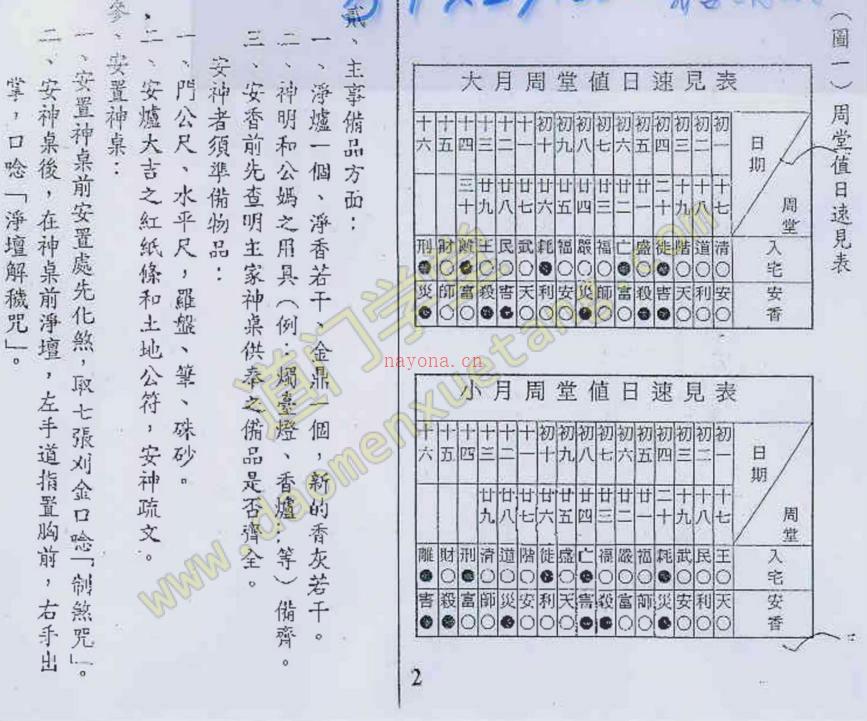 (圖一)周堂值日速見表
大月周堂值日速見表
日期 周堂
初一 初二 初三 初四 初五 初六 初七 初八 初九 初十 十一 十二 十三 十四 十五 十六
十七 十八 十九 二十 廿一 廿二 廿三 廿四 廿五 廿六 廿七 廿八 廿九 三十
入宅 清 道 階 徙 盛 亡 福 嚴 福 耗 武 民 王 離 財 刑
安香 安 利 天 害 殺 富 師 災 安 利 天 害 殺 富 師 災
小月周堂值日速見表
日期 周堂
初一 初二 初三 初四 初五 初六 初七 初八 初九 初十 十一 十二 十三 十四 十五 十六
十七 十八 十九 二十 廿一 廿二 廿三 廿四 廿五 廿六 廿七 廿八 廿九
入宅 王 民 武 耗 福 嚴 福 亡 盛 徙 階 道 清 刑 財 離
安香 天 利 安 災 師 富 殺 害 天 利 安 災 師 富 殺 害
2
貳、主事備品方面:
一、淨爐一個、淨香若干、金鼎一個,新的香灰若干。
二、神明和公媽之用具(例:燭臺燈、香爐…等)備齊。
三、安香前先查明主家神桌供奉之備品是否齊全。
安神者須準備物品:
一、門公尺、水平尺,羅盤、筆、硃砂。
二、安爐大吉之紅紙條和土地公符,安神疏文。
參、安置神桌:
一、安置神桌前安置處先化煞,取七張刈金口唸「制煞咒」。
二、安神桌後,在神桌前淨壇,左手道指置胸前,右手出
掌,口唸「淨壇解穢咒」。
道门学堂
www.daomenxuetang.com
nayona.cn